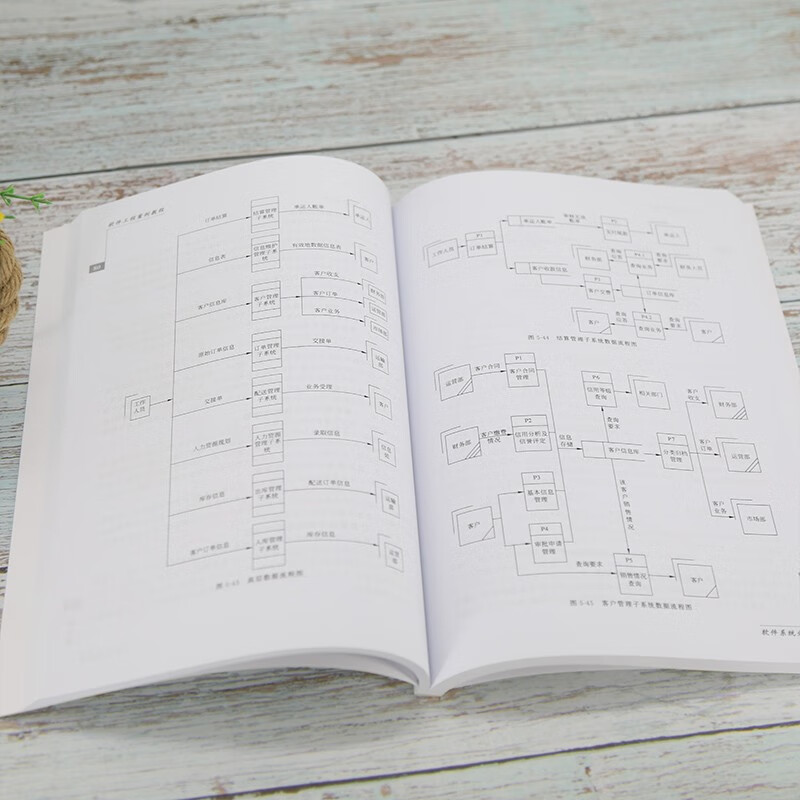 订单结算
结算管理
子系统
承运人账单
承运人
信息表
信息维护
管理子系
统
有效地数据信息表
客户
客户信息库
客户管理
子系统
客户收支
财务部
客户订单
运营部
客户业务
市场部
原始订单信息
订单管理
子系统
交接单
运输
部
工作
人员
交接单
配送管理
子系统
业务受理
客户
人力资源规划
人力资源
管理子系
统
录取信息
库存信息
出库管理
子系统
配送订单信息
运输
部
客户订单信息
入库管理
子系统
库存信息
运营
部
图 5-43 顶层数据流程图
工作人员
P1
订单结算
承运人账单
承运人
客户收款信息
客户交费
订单信息库
财务部
查询
应答
查询
要求
P4.2
查询业务
客户
查询
应答
查询
要求
客户
图 5-44 结算管理子系统数据流程图
运营部
客户合同
P1
客户合同
管理
财务部
客户缴费
情况
P2
信用分析及
信誉评定
信息
存储
客户
P3
基本信息
管理
P4
审批申请
管理
P6
信用等级
查询
相关部门
查询
要求
客户信息库
P7
分类归档
管理
客户
收支
财务部
客户
订单
运营部
客户
业务
市场部
读客户销售情况
查询要求
P5
销售情况
查询
客户
图 5-45 客户管理子系统数据流程图
软件系统